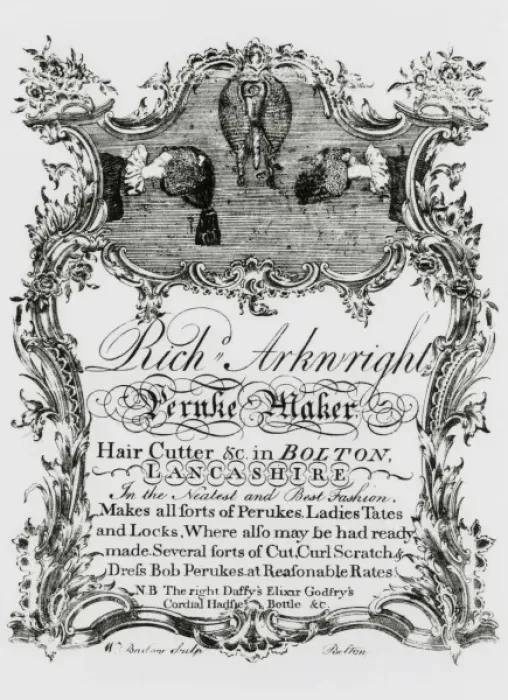 Richd. Arkwright
Peruke Maker
Hair Cutter &c. in BOLTON,
LANCASHIRE
In the Neatest and Best Fashion.
Makes all ſorts of Perukes, Ladies Tates
and Locks, Where alſo may be had ready
made, Several ſorts of Cut, Curl Scratch &
Dreſs Bob Perukes, at Reaſonable Rates.
N.B The right Daffy's Elixir Godfry's
Cordial Bottle &c.
Sculp Bolton